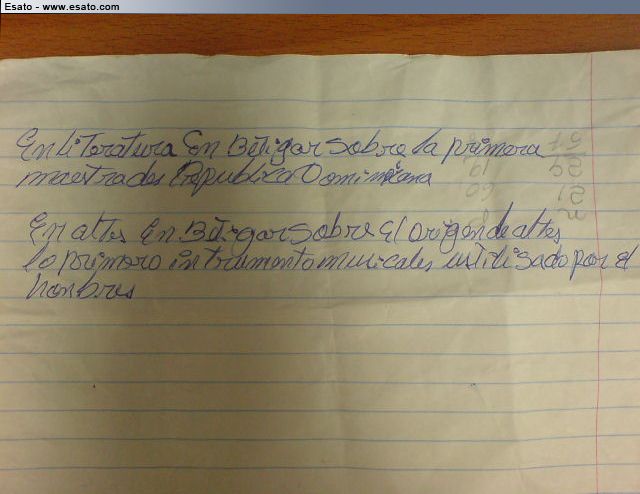 Esato - www.esato.com
En Literatura En Betigar Sobre la primera
maestra des Republica Dominicana
En altes En Betigar Sobre El origen de altes
lo primero intrumento musicales ustilisado por El
honbres